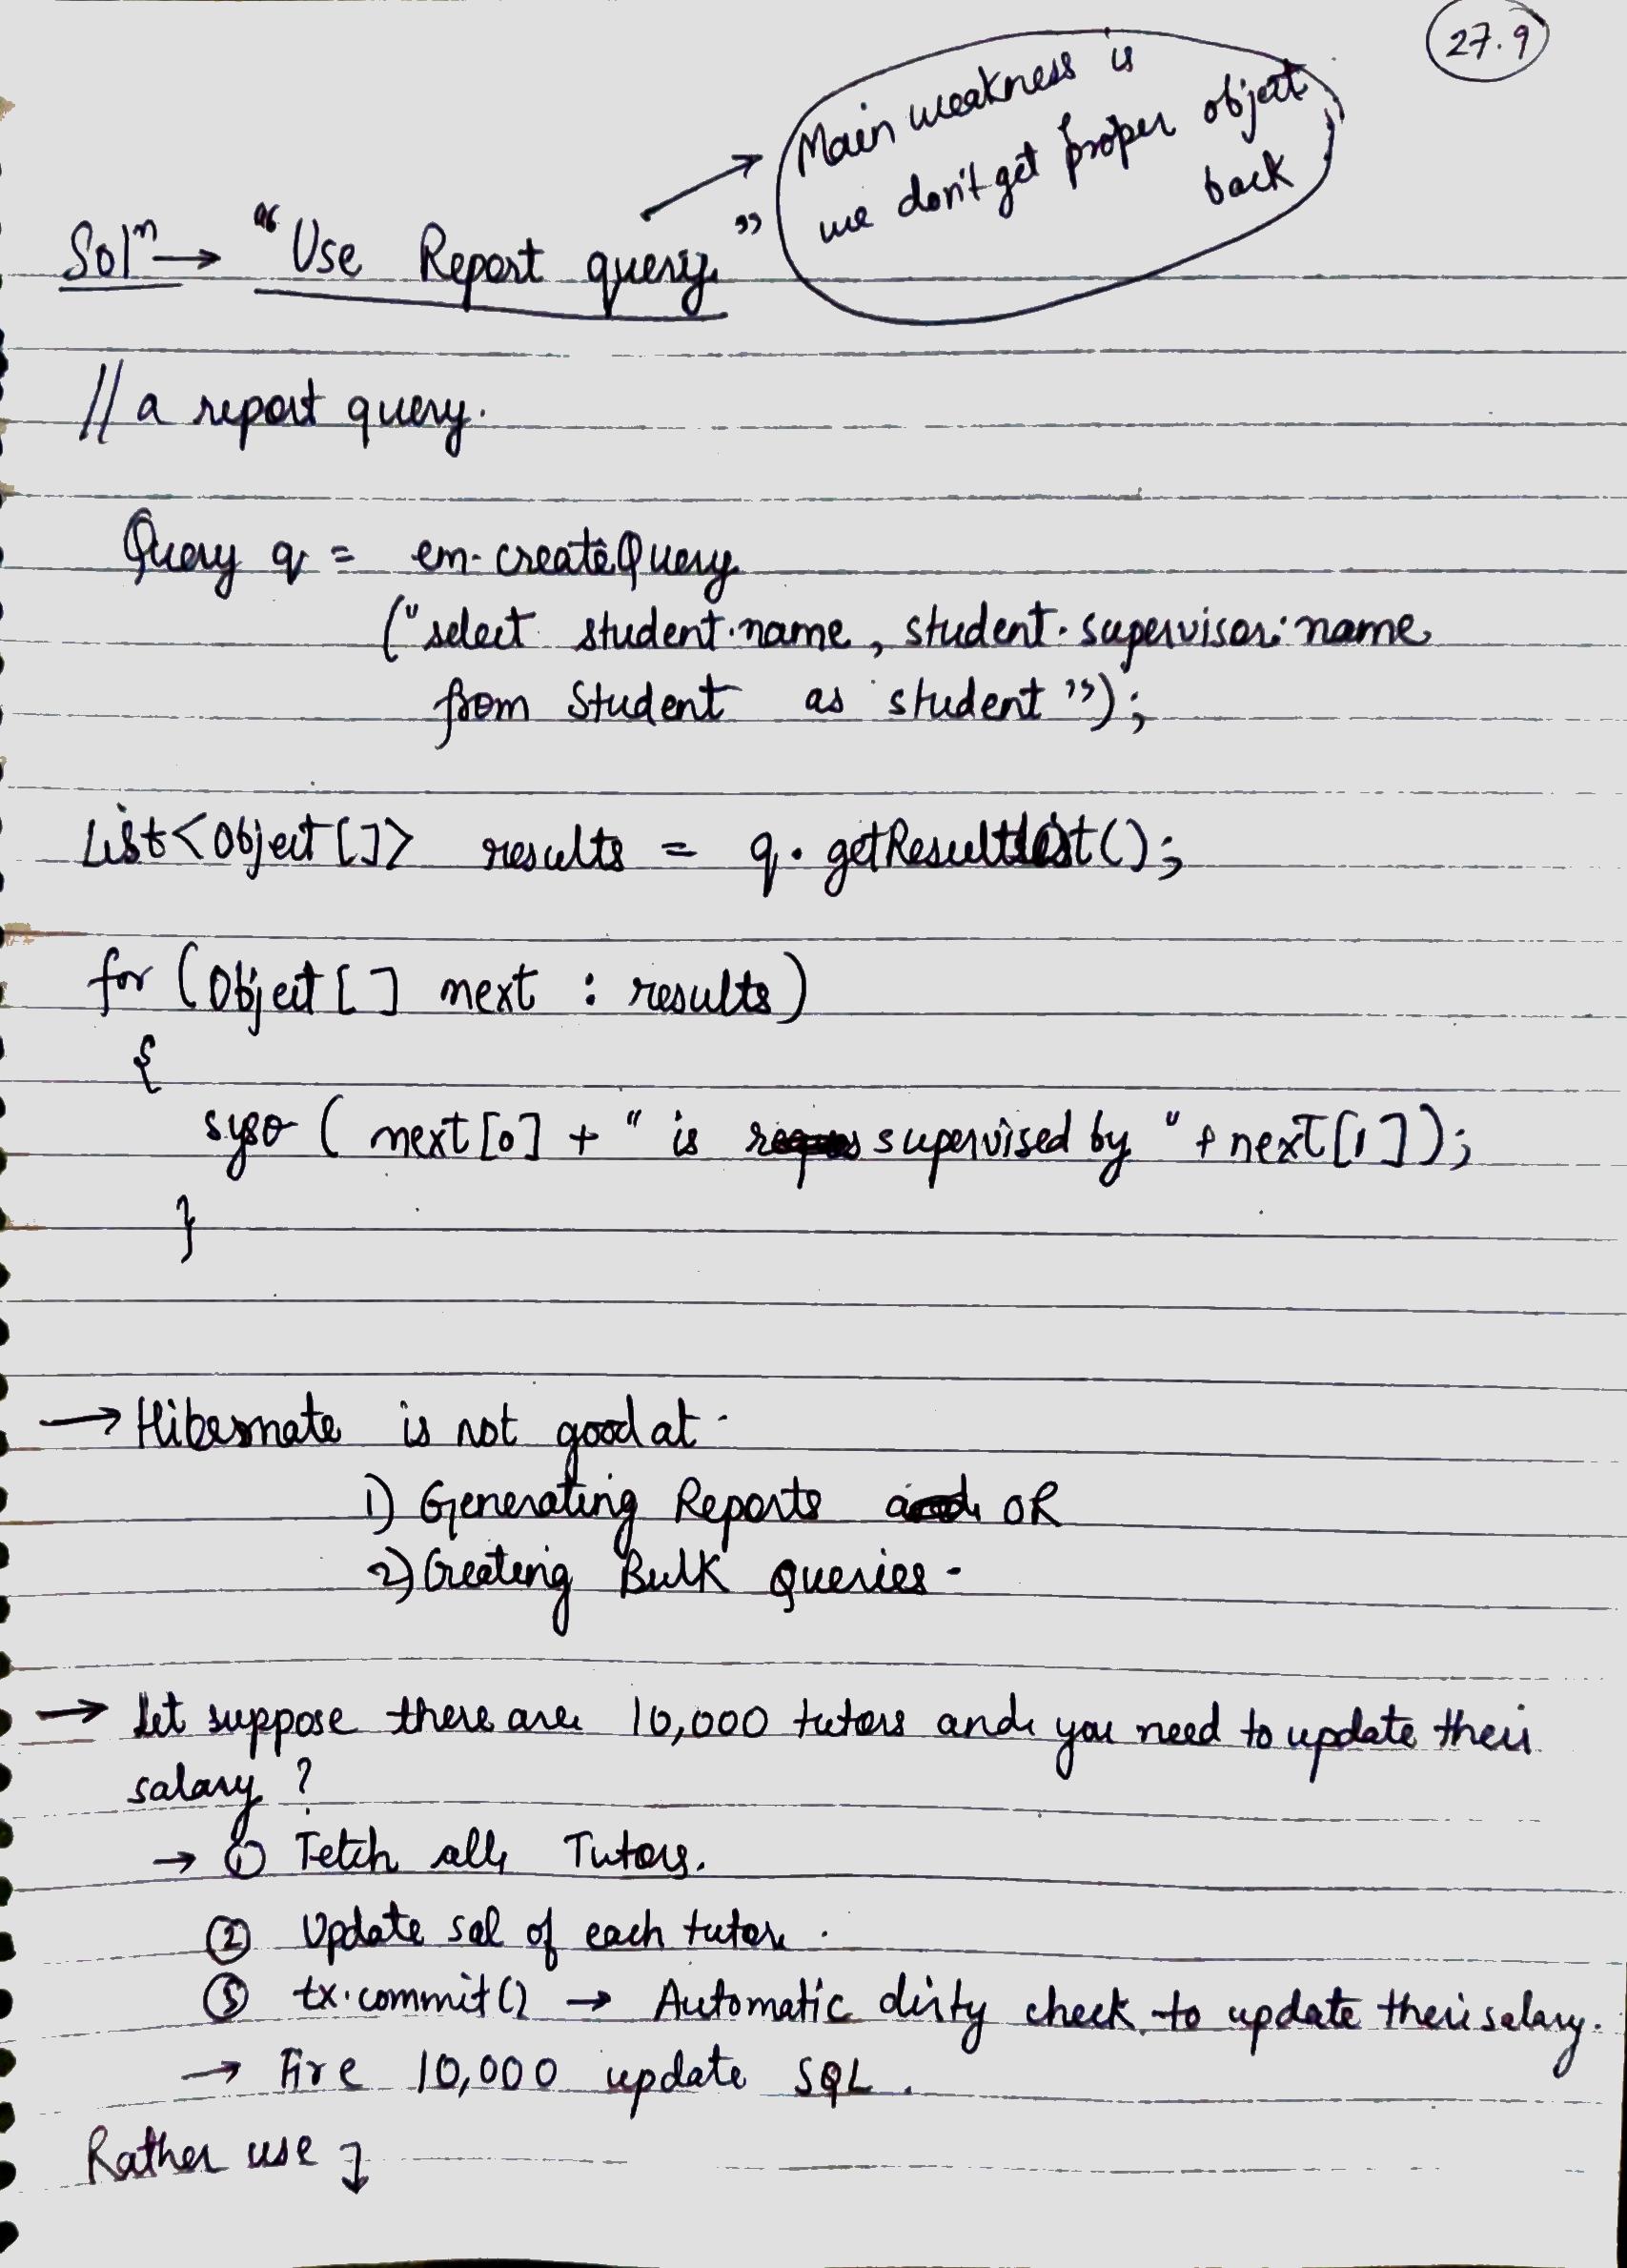 27.9
Main weakness is
we don't get proper object
back
Solⁿ → "Use Report query"
// a report query.
Query q = em.createQuery
("select student.name, student.supervisor.name
from Student as student");
List<Object[]> results = q.getResultList();
for (Object[] next : results)
{
syso ( next[0] + " is supervised by " + next[1]);
}
→ Hibernate is not good at -
1) Generating Reports OR
2) Creating Bulk Queries -
→ Let suppose there are 10,000 tutors and you need to update their
salary ?
→ ① Fetch all Tutors.
② Update sal of each tutor.
③ tx.commit() → Automatic dirty check to update their salary.
→ Fire 10,000 update SQL.
Rather use ↴